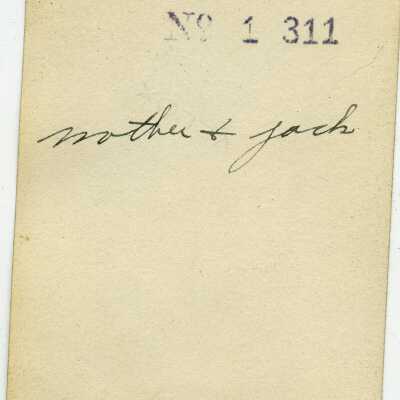 Nº 1 311
mother & jack